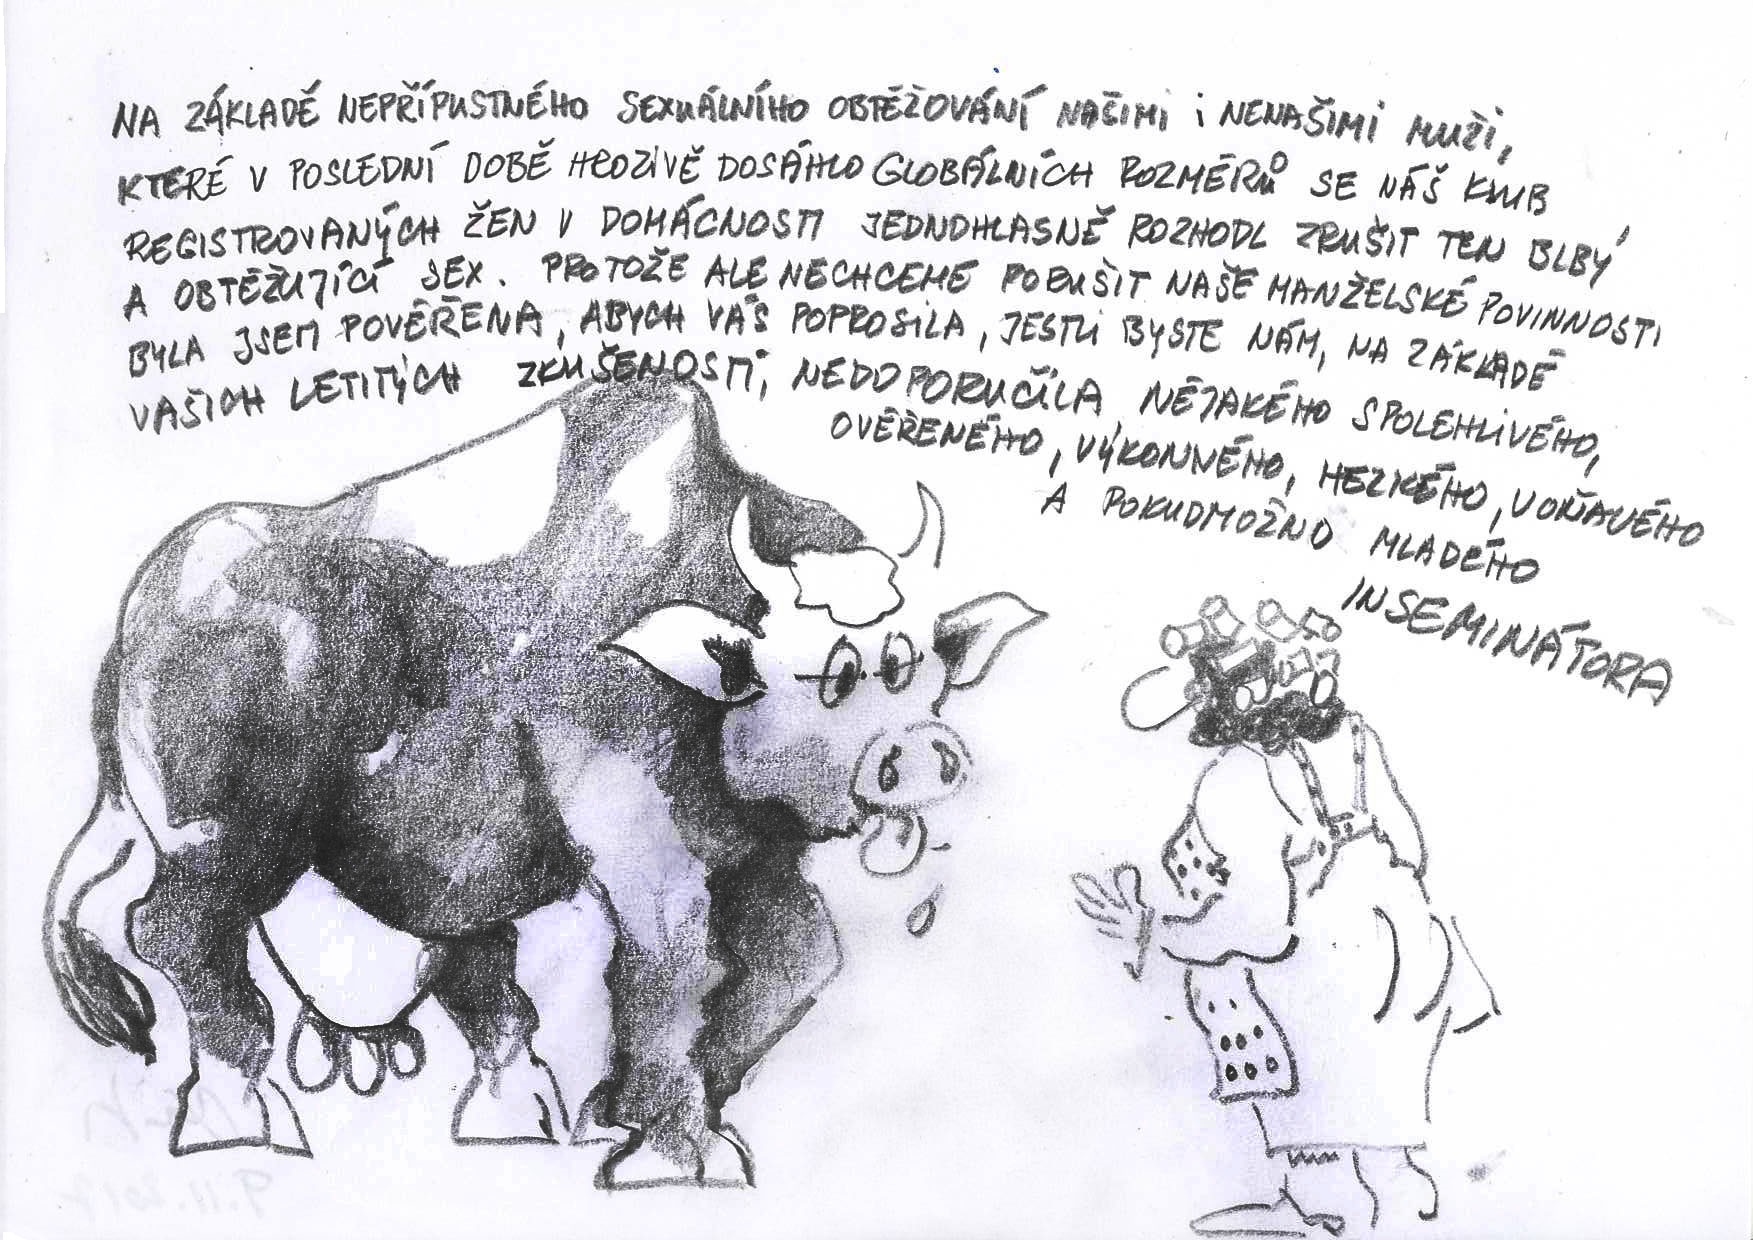 NA ZÁKLADĚ NEPŘÍPUSTNÉHO SEXUÁLNÍHO OBTĚŽOVÁNÍ NAŠIMI i NENAŠIMI MUŽI,
KTERÉ V POSLEDNÍ DOBĚ HROZIVĚ DOSÁHLO GLOBÁLNÍCH ROZMĚRŮ SE NÁŠ KLUB
REGISTROVANÝCH ŽEN V DOMÁCNOSTI JEDNOHLASNĚ ROZHODL ZRUŠIT TEN BLBÝ
A OBTĚŽUJÍCÍ SEX. PROTOŽE ALE NECHCEME PORUŠIT NAŠE MANŽELSKÉ POVINNOSTI
BYLA JSEM POVĚŘENA, ABYCH VÁS POPROSILA, JESTLI BYSTE NÁM, NA ZÁKLADĚ
VAŠICH LETITÝCH ZKUŠENOSTÍ, NEDOPORUČILA NĚJAKÉHO SPOLEHLIVÉHO,
OVĚŘENÉHO, VÝKONNÉHO, HEZKÉHO, VOŇAVÉHO
A POKUDMOŽNO MLADÉHO
INSEMINÁTORA
9.11.2017